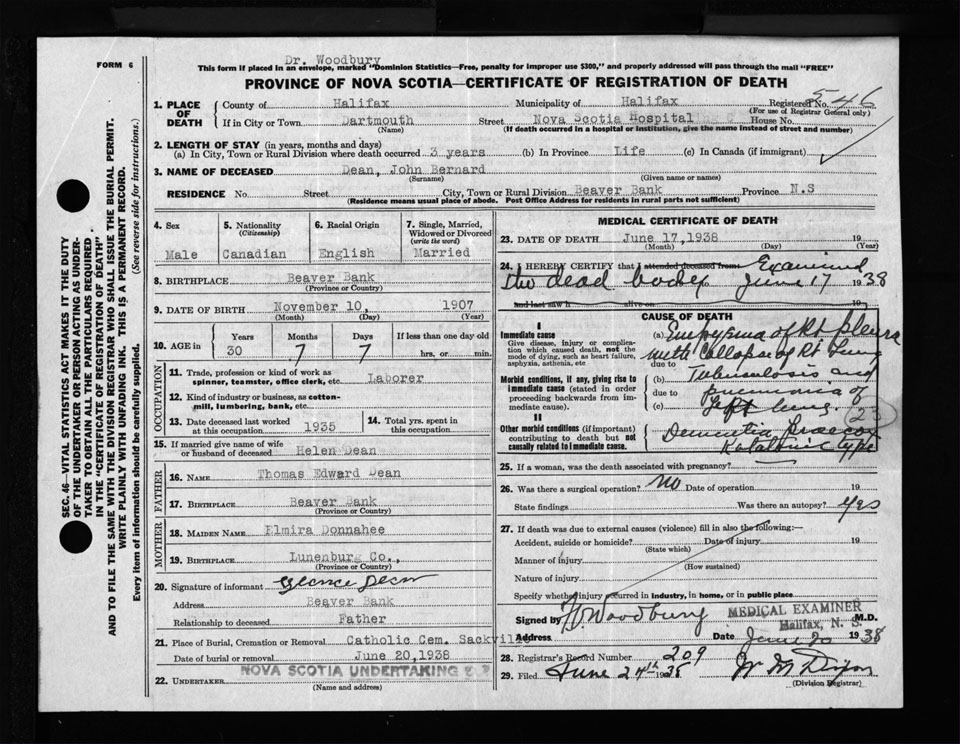 Dr. Woodbury
FORM 6
This form if placed in an envelope, marked "Dominion Statistics—Free, penalty for improper use $300," and properly addressed will pass through the mail "FREE"
PROVINCE OF NOVA SCOTIA—CERTIFICATE OF REGISTRATION OF DEATH
546
1. PLACE OF DEATH
County of Halifax Municipality of Halifax Registered No.
(For use of Registrar General only)
If in City or Town Dartmouth Street Nova Scotia Hospital House No.
(Name) (If death occurred in a hospital or institution, give the name instead of street and number)
2. LENGTH OF STAY (in years, months and days)
(a) In City, Town or Rural Division where death occurred 3 years (b) In Province Life (c) In Canada (if immigrant)
3. NAME OF DECEASED Dean, John Bernard
(Surname) (Given name or names)
RESIDENCE No. Street City, Town or Rural Division Beaver Bank Province N.S
(Residence means usual place of abode. Post Office Address for residents in rural parts not sufficient)
4. Sex 5. Nationality (Citizenship) 6. Racial Origin 7. Single, Married, Widowed or Divorced (write the word)
Male Canadian English Married
8. BIRTHPLACE Beaver Bank
(Province or Country)
9. DATE OF BIRTH November 10, 1907
(Month) (Day) (Year)
10. AGE in Years Months Days If less than one day old
30 7 7 hrs. or min.
OCCUPATION
11. Trade, profession or kind of work as spinner, teamster, office clerk, etc. Laborer
12. Kind of industry or business, as cotton-mill, lumbering, bank, etc.
13. Date deceased last worked at this occupation 1935 14. Total yrs. spent in this occupation
15. If married give name of wife or husband of deceased Helen Dean
FATHER
16. NAME Thomas Edward Dean
17. BIRTHPLACE Beaver Bank
(Province or Country)
MOTHER
18. MAIDEN NAME Elmira Donnahee
19. BIRTHPLACE Lunenburg Co.,
(Province or Country)
20. Signature of informant Dean
Address Beaver Bank
Relationship to deceased Father
21. Place of Burial, Cremation or Removal Catholic Cem. Sackville
Date of burial or removal June 20,1938
22. UNDERTAKER NOVA SCOTIA UNDERTAKING
(Name and address)
MEDICAL CERTIFICATE OF DEATH
23. DATE OF DEATH June 17,1938 19
(Month) (Day) (Year)
24. I HEREBY CERTIFY that I attended deceased from Examined
the dead body June 17 1938
and last saw h alive on 19
CAUSE OF DEATH
I
Immediate cause
Give disease, injury or complication which caused death, not the mode of dying, such as heart failure, asphyxia, asthenia, etc
(a) Empyema of Rt pleura
with Collapse of Rt Lung
due to
Morbid conditions, if any, giving rise to immediate cause (stated in order proceeding backwards from immediate cause).
(b) Tuberculosis and
due to
(c) of left lung.
23
II
Other morbid conditions (if important) contributing to death but not causally related to immediate cause.
Dementia praecox
Katatonic type
25. If a woman, was the death associated with pregnancy?
26. Was there a surgical operation? No Date of operation 19
State findings Was there an autopsy? yes
27. If death was due to external causes (violence) fill in also the following:—
Accident, suicide or homicide? Date of injury 19
(State which)
Manner of injury
(How sustained)
Nature of injury
Specify whether injury occurred in industry, in home, or in public place
Signed by Woodbury MEDICAL EXAMINER M.D.
Halifax, N. S.
Address Date June 20 1938
28. Registrar's Record Number 209
29. Filed June 24th 1938 W M Dixon
(Division Registrar)
SEC. 46—VITAL STATISTICS ACT MAKES IT THE DUTY
OF THE UNDERTAKER OR PERSON ACTING AS UNDER-
TAKER TO OBTAIN ALL THE PARTICULARS REQUIRED
IN THE "CERTIFICATE OF REGISTRATION OF DEATH"
AND TO FILE THE SAME WITH THE DIVISION REGISTRAR WHO SHALL ISSUE THE BURIAL PERMIT.
WRITE PLAINLY WITH UNFADING INK. THIS IS A PERMANENT RECORD.
Every item of information should be carefully supplied. (See reverse side for instructions.)